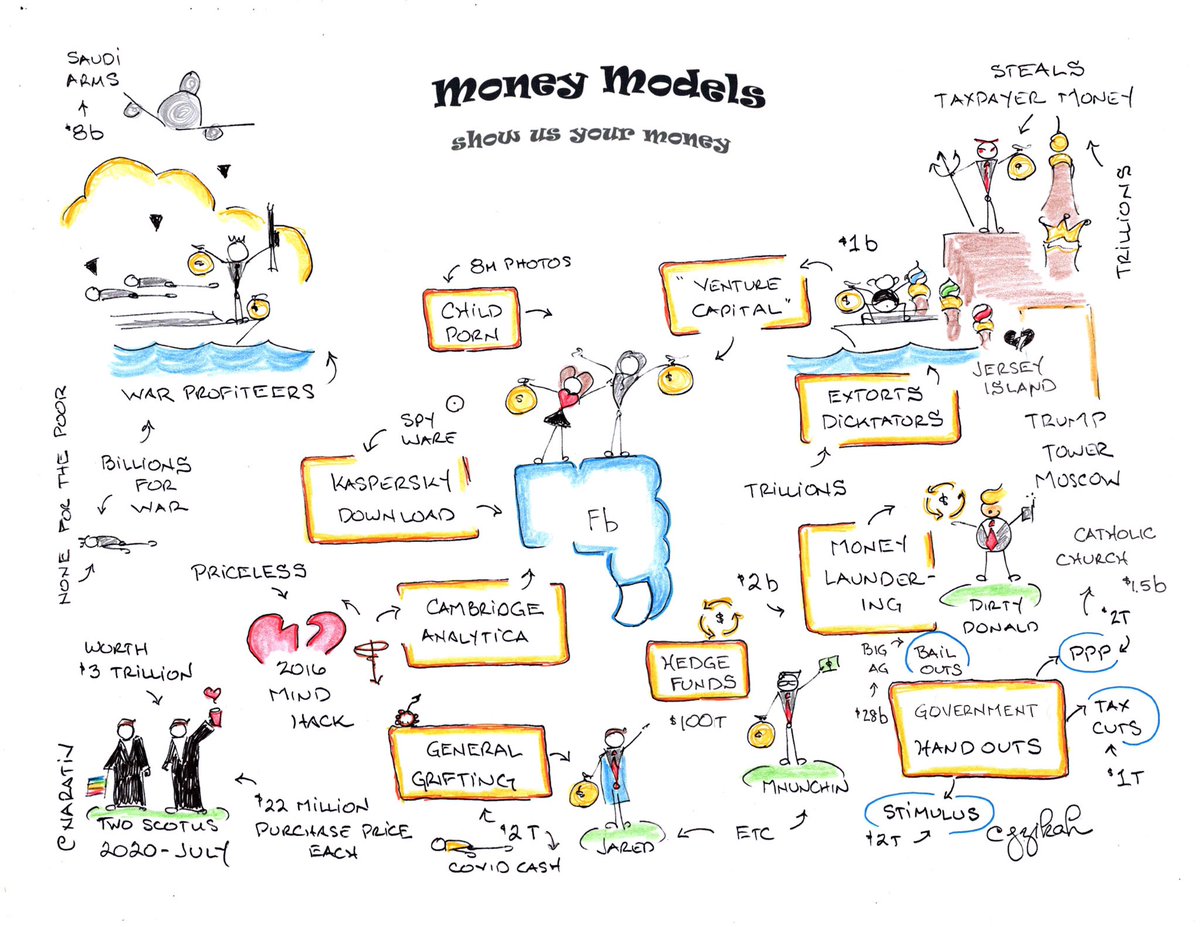 Money Models
show us your money
SAUDI
ARMS
$8b
WAR PROFITEERS
BILLIONS
FOR
WAR
NONE FOR THE POOR
8M PHOTOS
CHILD
PORN
"VENTURE
CAPITAL"
$1b
STEALS
TAXPAYER MONEY
TRILLIONS
JERSEY
ISLAND
EXTORTS
DICKTATORS
TRILLIONS
TRUMP
TOWER
MOSCOW
SPY
WARE
KASPERSKY
DOWNLOAD
$
$
Fb
MONEY
LAUNDER-
ING
$2b
$
DIRTY
DONALD
CATHOLIC
CHURCH
$1.5b
$2T
PPP
PRICELESS
2016
MIND
HACK
CAMBRIDGE
ANALYTICA
$
HEDGE
FUNDS
$100T
BIG
AG
$28b
BAIL
OUTS
GOVERNMENT
HAND OUTS
TAX
CUTS
$1T
STIMULUS
$2T
WORTH
$3 TRILLION
TWO SCOTUS
2020-JULY
$22 MILLION
PURCHASE PRICE
EACH
GENERAL
GRIFTING
$2T
COVID CASH
JARED
ETC
$
MNUNCHIN
©NARATIN